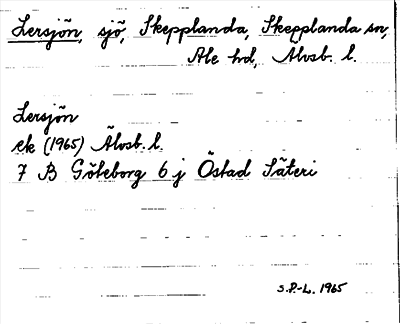 Lersjön, sjö, Skepplanda, Skepplanda sn,
Ale hd, Älvsb. l.
Lersjön
ek (1965) Älvsb. l.
7 B Göteborg 6 j Östad Säteri
S.P.-L. 1965